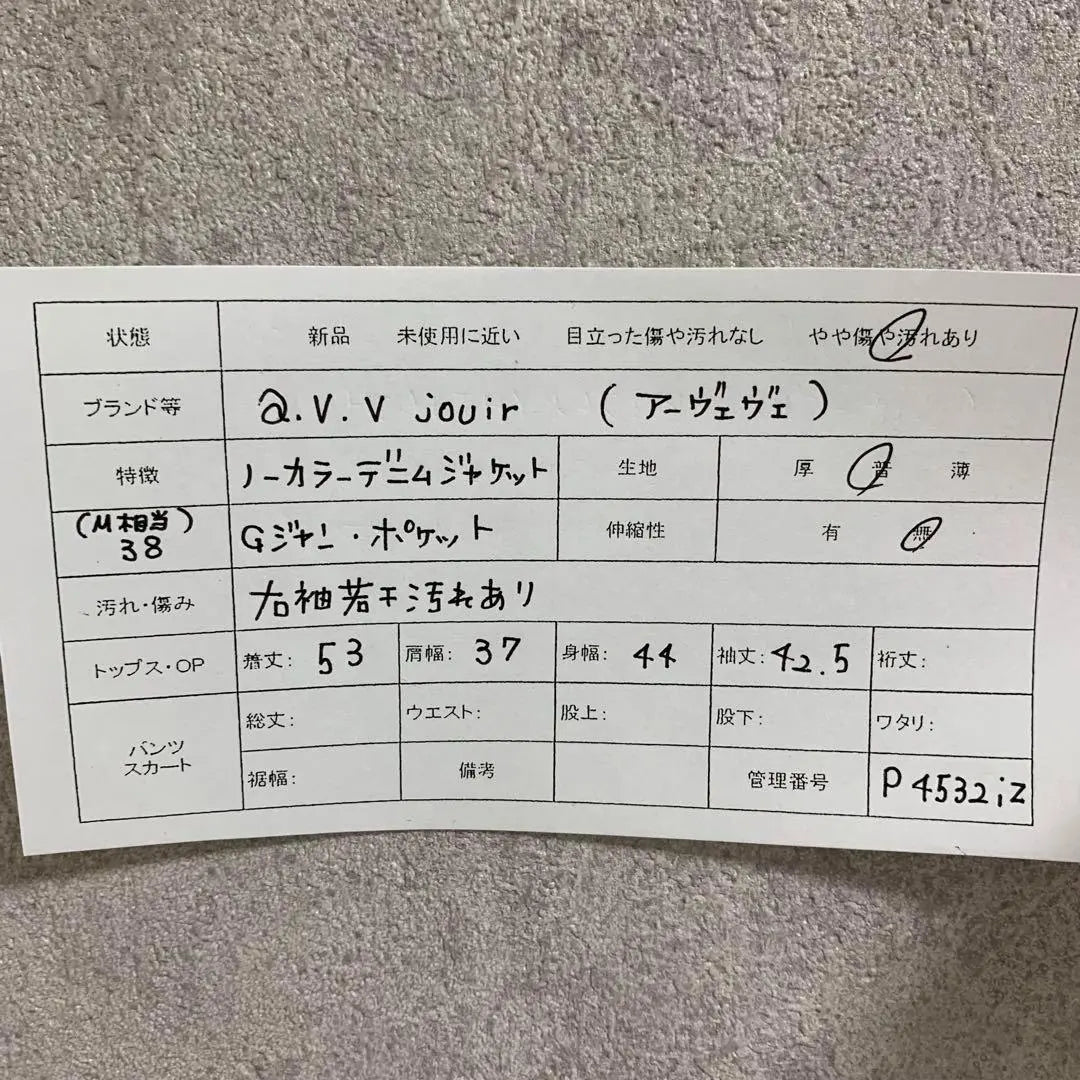 状態 新品 未使用に近い 目立った傷や汚れなし やや傷や汚れあり
ブランド等 a.v.v jouir (アーヴェヴェ)
特徴 ノーカラーデニムジャケット 生地 厚 普 薄
(M相当) 38 Gジャン・ポケット 伸縮性 有 無
汚れ・傷み 右袖若干汚れあり
トップス・OP 着丈: 53 肩幅: 37 身幅: 44 袖丈: 42.5 裄丈:
パンツ スカート 総丈: ウエスト: 股上: 股下: ワタリ:
裾幅: 備考 管理番号 P4532iz